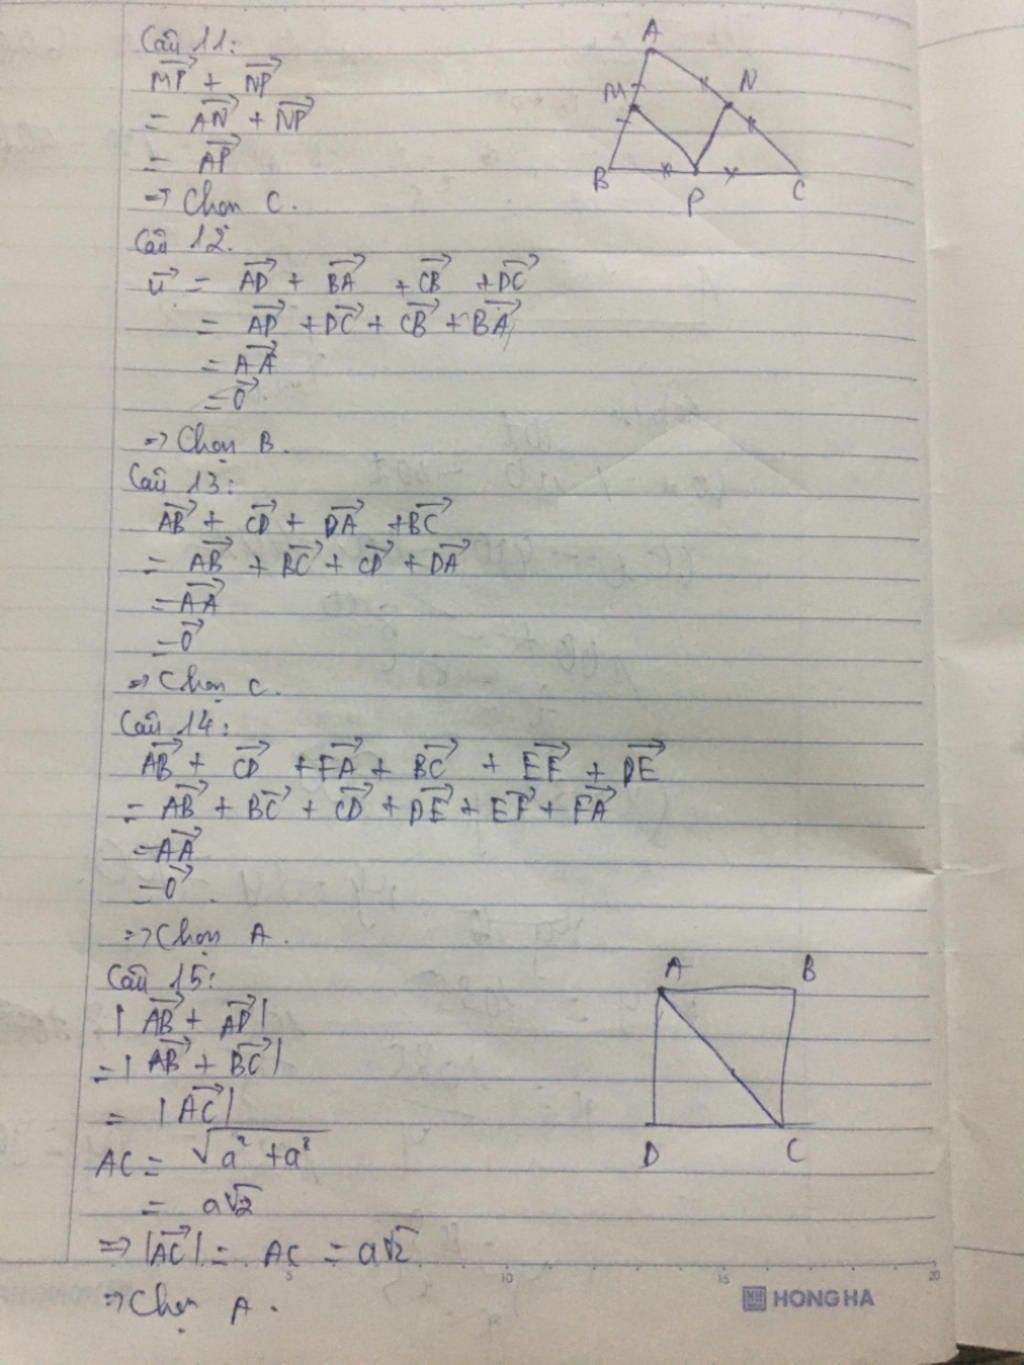 Câu 11:
$\overrightarrow{MP} + \overrightarrow{NP}$
$= \overrightarrow{AN} + \overrightarrow{NP}$
$= \overrightarrow{AP}$
=> Chọn C.
A
M
N
B
P
C
Câu 12.
$\overrightarrow{u} = \overrightarrow{AD} + \overrightarrow{BA} + \overrightarrow{CB} + \overrightarrow{DC}$
$= \overrightarrow{AD} + \overrightarrow{DC} + \overrightarrow{CB} + \overrightarrow{BA}$
$= \overrightarrow{AA}$
$= \overrightarrow{0}$
=> Chọn B.
Câu 13:
$\overrightarrow{AB} + \overrightarrow{CD} + \overrightarrow{DA} + \overrightarrow{BC}$
$= \overrightarrow{AB} + \overrightarrow{BC} + \overrightarrow{CD} + \overrightarrow{DA}$
$= \overrightarrow{AA}$
$= \overrightarrow{0}$
=> Chọn C.
Câu 14:
$\overrightarrow{AB} + \overrightarrow{CD} + \overrightarrow{FA} + \overrightarrow{BC} + \overrightarrow{EF} + \overrightarrow{DE}$
$= \overrightarrow{AB} + \overrightarrow{BC} + \overrightarrow{CD} + \overrightarrow{DE} + \overrightarrow{EF} + \overrightarrow{FA}$
$= \overrightarrow{AA}$
$= \overrightarrow{0}$.
=> Chọn A.
Câu 15:
$| \overrightarrow{AB} + \overrightarrow{AD} |$
$= | \overrightarrow{AB} + \overrightarrow{BC} |$
$= | \overrightarrow{AC} |$
$AC = \sqrt{a^2 + a^2}$
$= a\sqrt{2}$
$=> |\overrightarrow{AC}| = AC = a\sqrt{2}$
=> Chọn A.
A
B
D
C
5 10 15 20
HONG HA